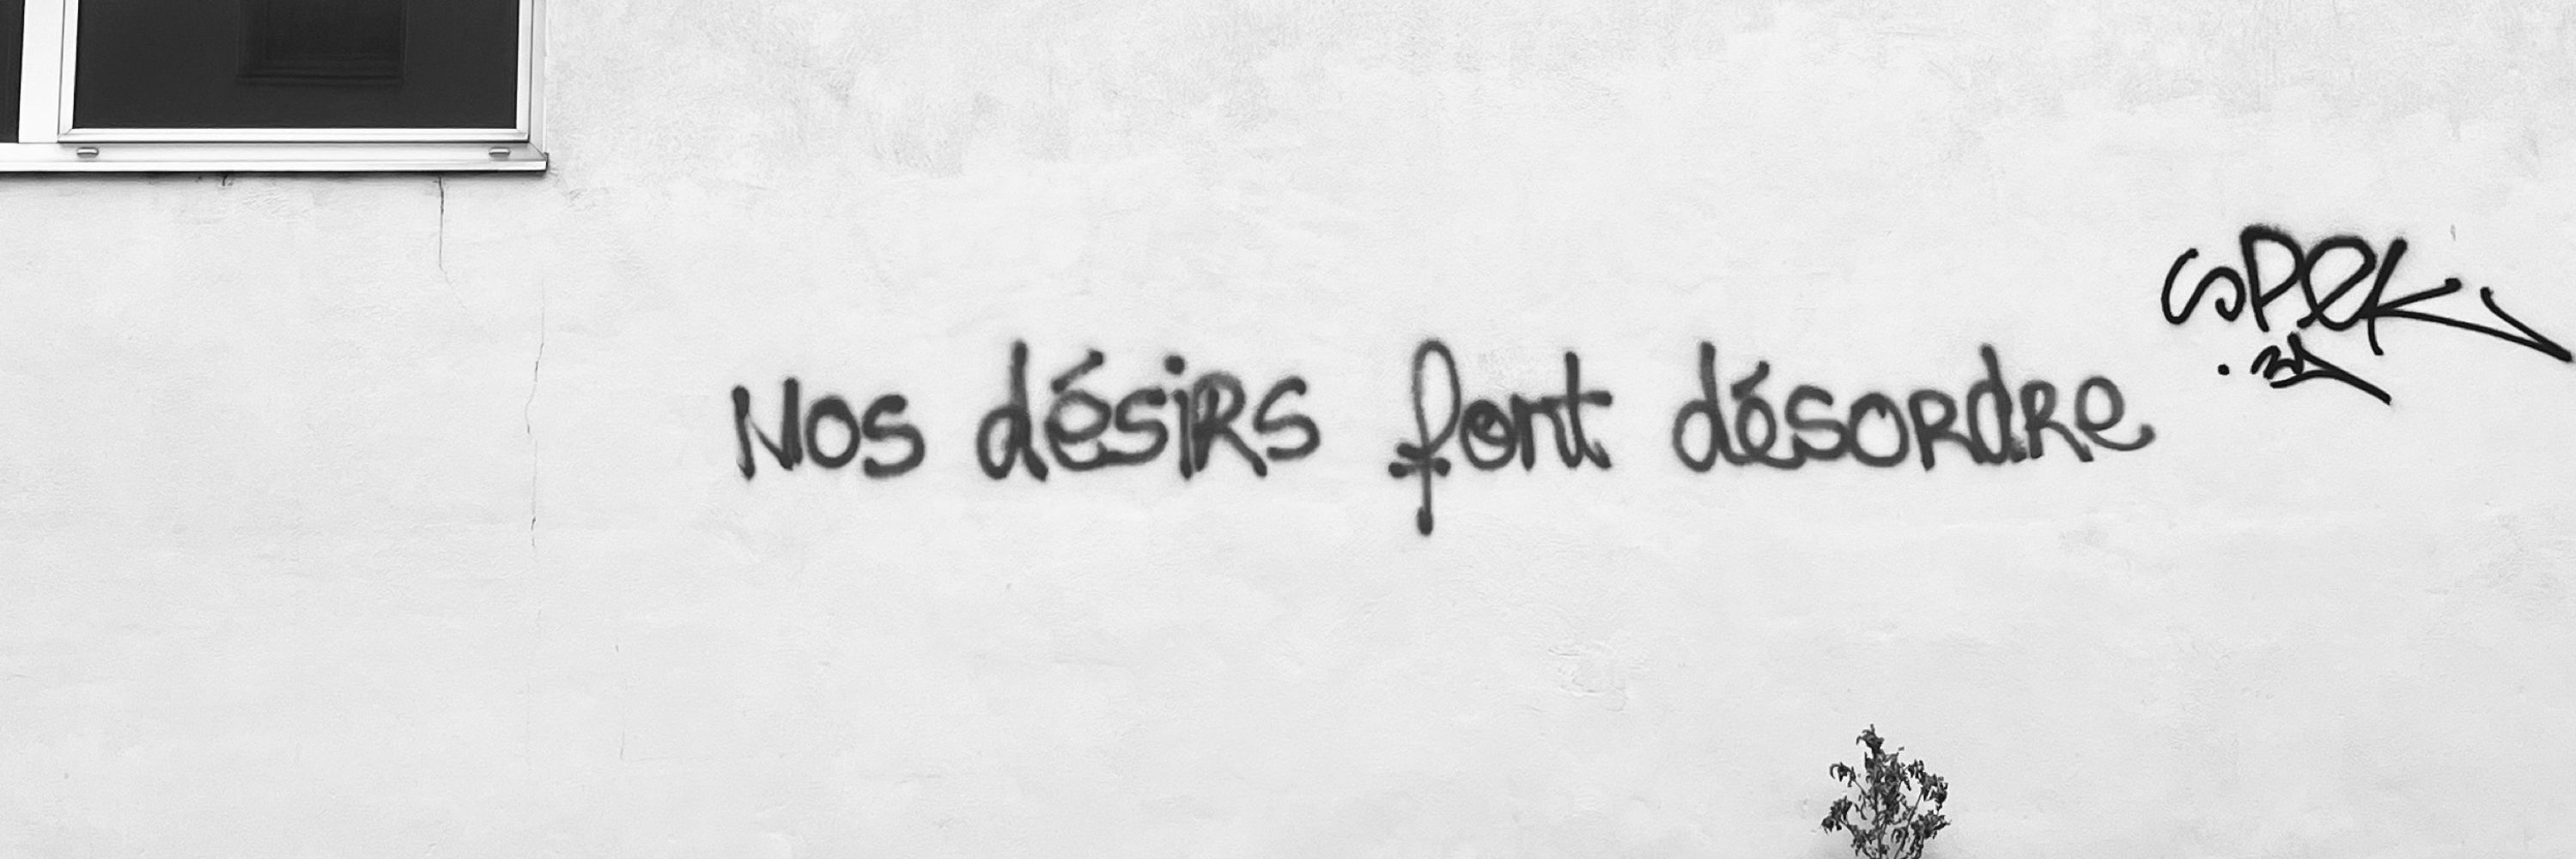 Nos désirs font désordre
SPEK